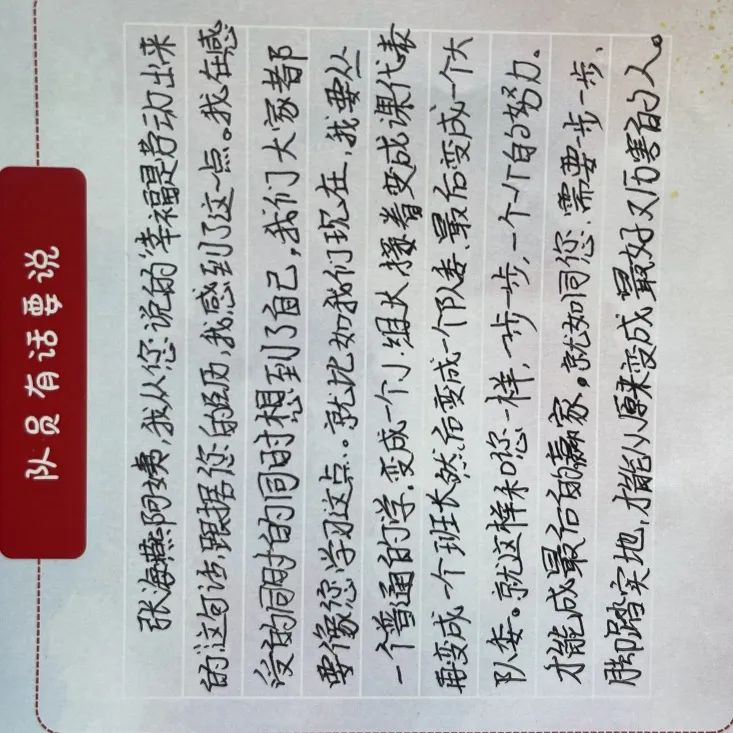 队员有话要说
张海燕阿姨,我从您说的“幸福是劳动出来
的这句话跟据您的经历,我感到了这一点。我在感
受的同时的同时想到了自己,我们大家都
要像您学习这点。就比如我们现在,我要从
一个普通的学,变成一个小组长接着变成课代表
再变成一个班长然后变成一个中队委,最后变成一个大
队委。就这样和您一样,一步一步,一个个的努力.
才能成最后的赢家。就如同您.需要一步一步、
脚踏实地,才能从原来变成最好又厉害的人。